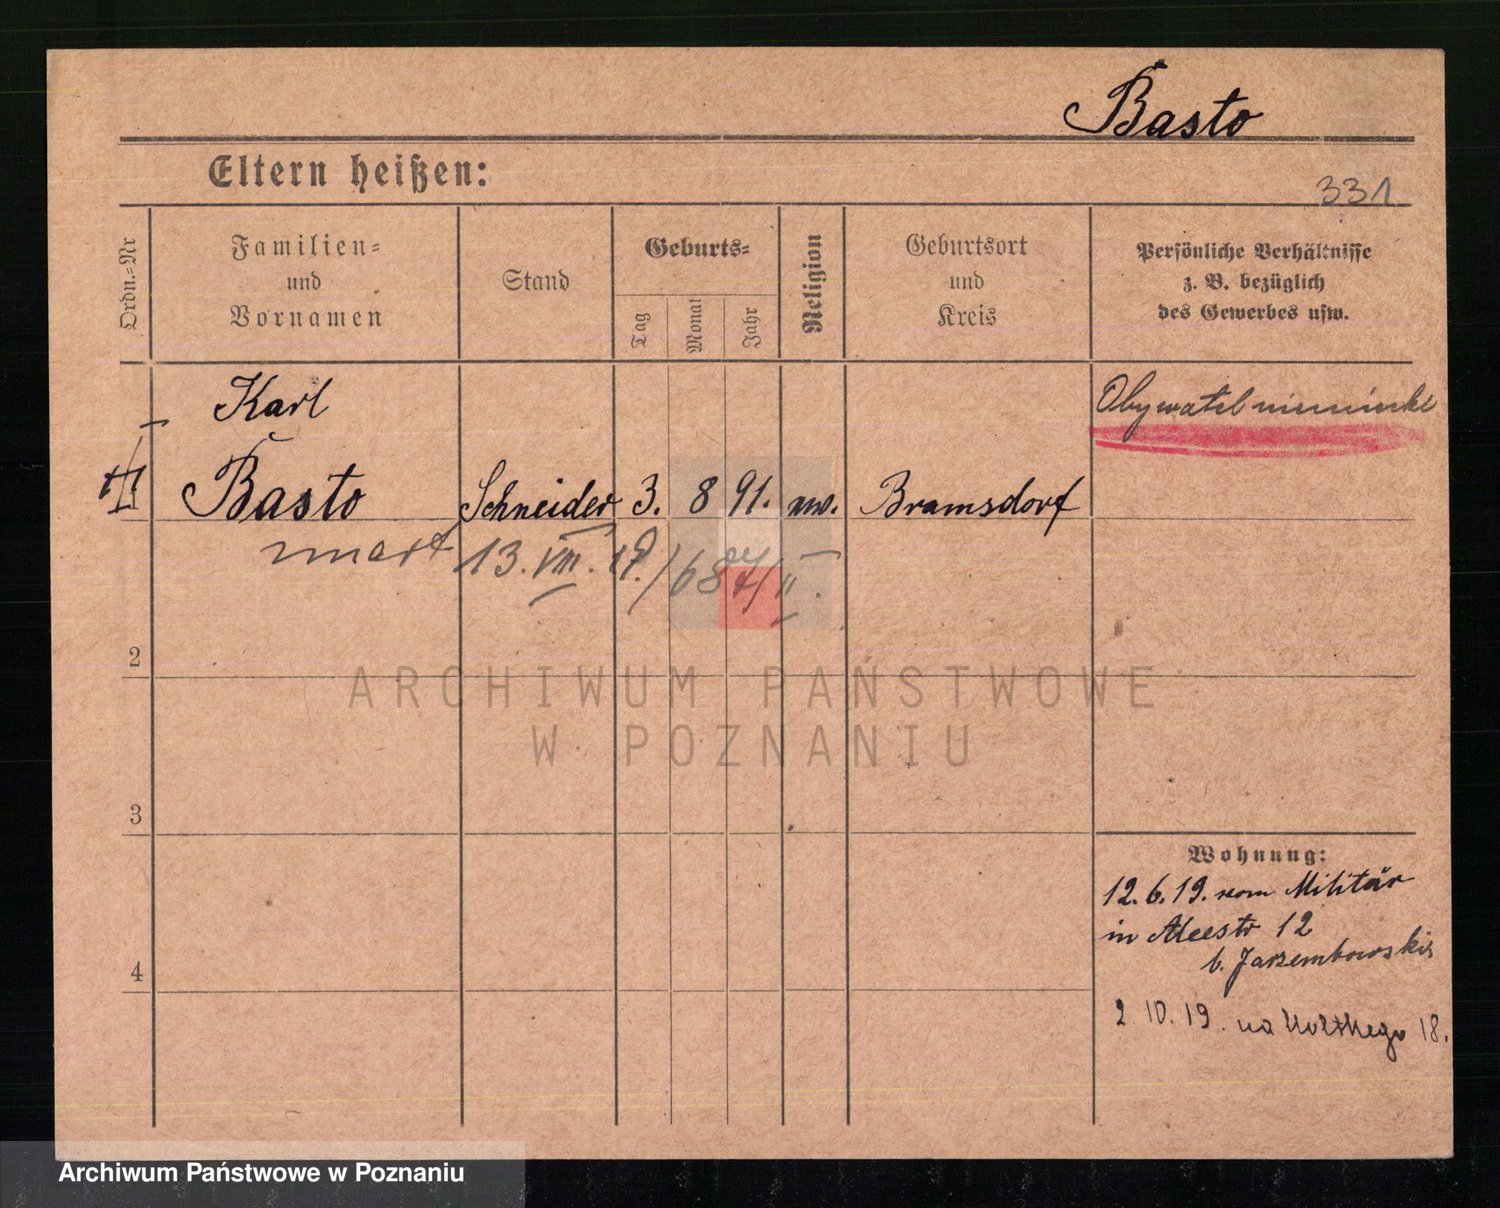 Basto
Eltern heißen:
331
Ordn.-Nr
Familien-
und
Vornamen
Stand
Geburts-
Tag
Monat
Jahr
Religion
Geburtsort
und
Kreis
Persönliche Verhältnisse
z. B. bezüglich
des Gewerbes usw.
Karl
Basto
Schneider
3.
8
91.
Bramsdorf
Obywatel niemiecki
zmarł 13. VIII. 19./
2
3
4
Wohnung:
12.6.19. vom Militär
in 12
b. Jarzembowski
2 10. 19. na 18.
ARCHIWUM PAŃSTWOWE
W POZNANIU
Archiwum Państwowe w Poznaniu